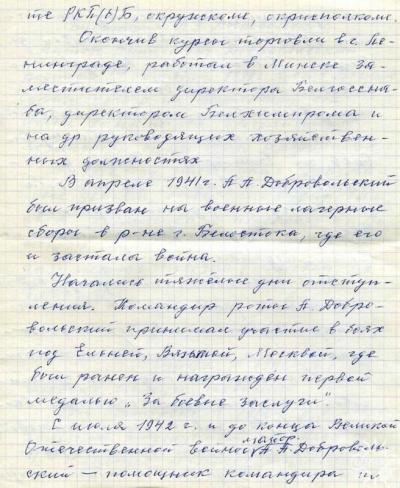 те РКП(б)Б, окружкоме, окрисполкоме.
Окончив курсы торговли в г. Ле-
нинграде, работал в Минске за-
местителем директора Белгоссна-
ба, директором Белхимпрома и
на др руководящих хозяйствен-
ных должностях
В апреле 1941 г. А А Добровольский
был призван на военные лагерные
сборы в р-не г. Белостока, где его
и застала война.
Начались тяжелые дни отступ-
ления. Командир роты А. Добро-
вольский принимал участие в боях
под Ельней, Вязьмой, Москвой, где
был ранен и награжден первой
медалью „За боевые заслуги".
С июля 1942 г. и до конца Великой
Отечественной войны майор А. А. Доброволь-
ский – помощник командира